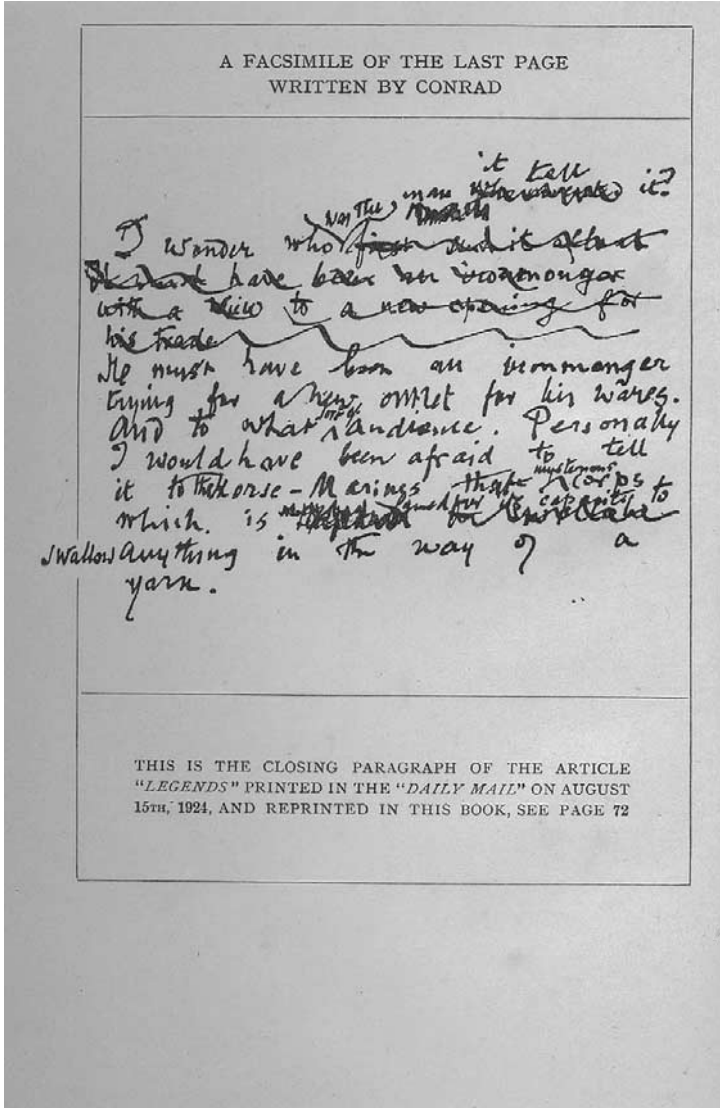 A FACSIMILE OF THE LAST PAGE
WRITTEN BY CONRAD
it tell
was the man it?
I wonder who first said it
must have been an ironmonger
with a view to a new opening for
his trade
He must have been an ironmonger
trying for a new outlet for his wares.
And to what sort of audience. Personally
I would have been afraid to tell
it to the Horse-Marines that mysterious corps
which is famed for its capacity to
swallow anything in the way of a
yarn.
THIS IS THE CLOSING PARAGRAPH OF THE ARTICLE
"LEGENDS" PRINTED IN THE "DAILY MAIL" ON AUGUST
15TH, 1924, AND REPRINTED IN THIS BOOK, SEE PAGE 72